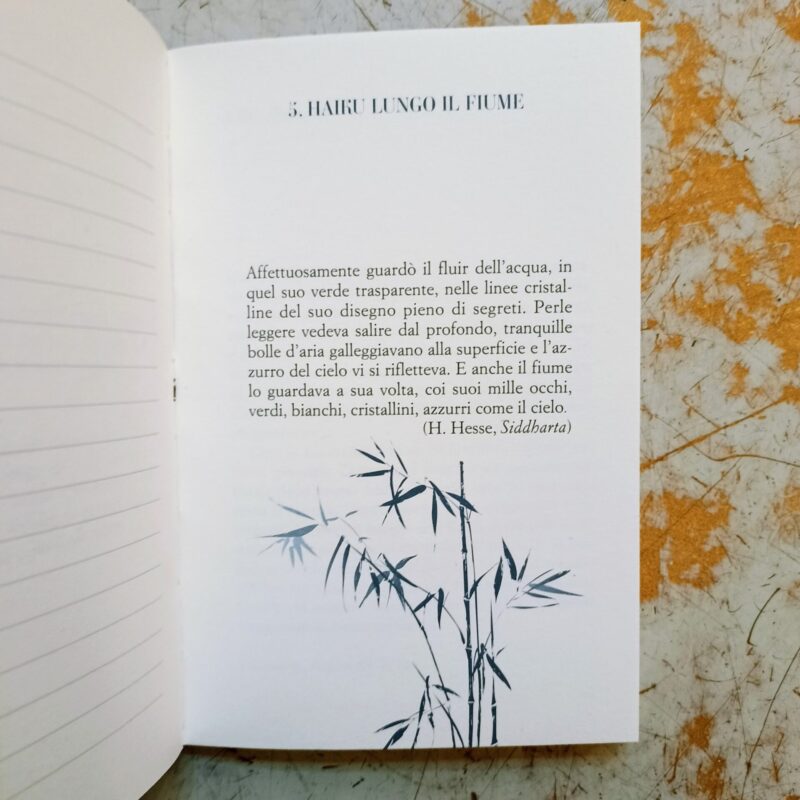 5. HAIKU LUNGO IL FIUME
Affettuosamente guardò il fluir dell'acqua, in
quel suo verde trasparente, nelle linee cristal-
line del suo disegno pieno di segreti. Perle
leggere vedeva salire dal profondo, tranquille
bolle d'aria galleggiavano alla superficie e l'az-
zurro del cielo vi si rifletteva. E anche il fiume
lo guardava a sua volta, coi suoi mille occhi,
verdi, bianchi, cristallini, azzurri come il cielo.
(H. Hesse, Siddharta)